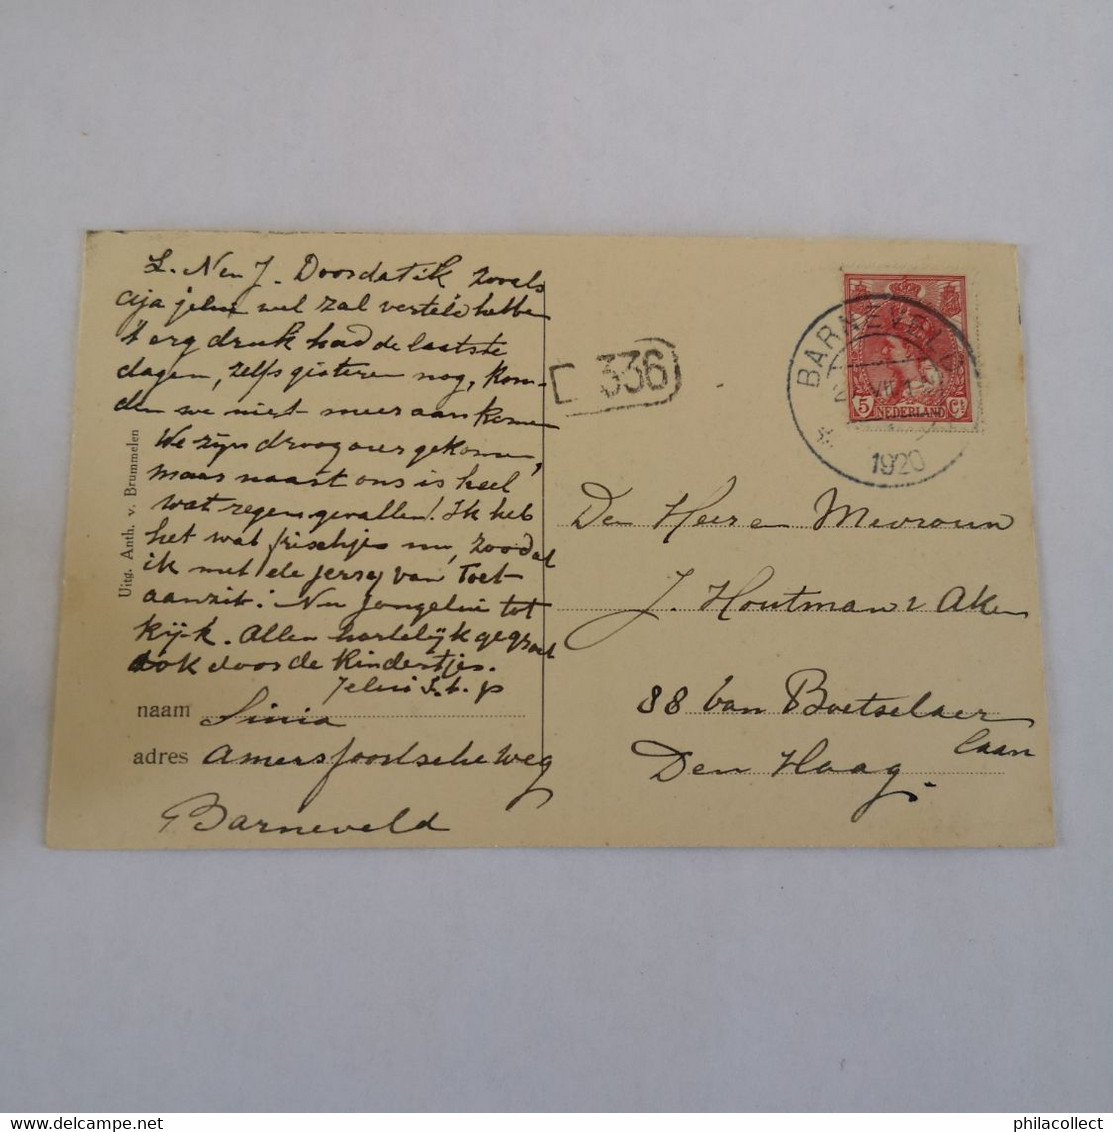 L. N en J. Doordat ik zooals
Cija jelui wel zal verteld hebben
't erg druk had de laatste
dagen, zelfs gisteren nog, kon-
den we niet meer aankomen
We zijn droog overgekomen,
maar naast ons is heel
wat regen gevallen! Ik heb
het wat frischjes nu, zoodat
ik met de jersey van Toet
aanzit! Nu jongelui tot
kijk. Allen hartelijk gegroet
ook door de kindertjes.
Jelui
naam Sinia
adres Amersfoortsche weg
Barneveld
Uitg. Anth. v. Brummelen
336
BARNEVELD
1920
5 Ct
NEDERLAND
Den Heer en Mevrouw
J. Houtman v Aken
88 van Boetselaer
laan
Den Haag.
philacollect